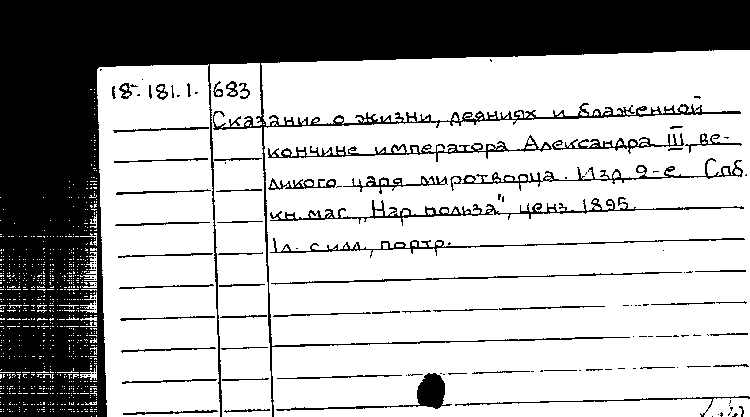 18.181.1. 683
Сказание о жизни, деяниях и блаженной
кончине императора Александра III, ве-
ликого царя миротворца. Изд. 2-е. Спб.
кн. маг. „Нар. польза", ценз. 1895.
1л. с илл., портр.